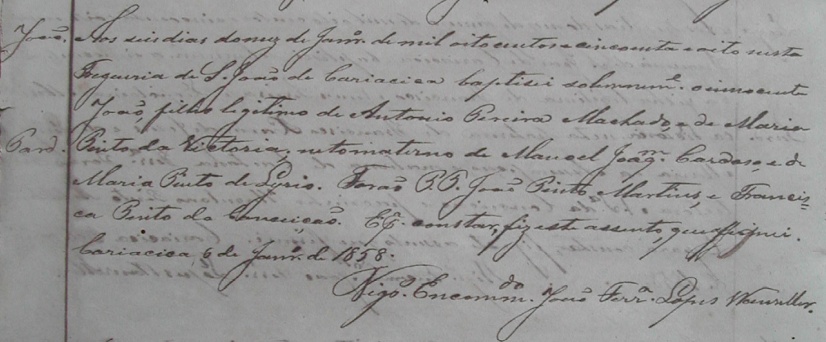 João. Aos seis dias do mez de Janr.º de mil oito centos e cincoenta e oito nesta
Freguesia de S. João de Cariacica baptisei solemnem.e o innocente
João, filho legitimo de Antonio Pereira Machado, e de Maria
Pard. Pinto da Victoria; neto materno de Manoel Joaq.m Cardoso, e de
Maria Pinto de Lyrio. Forão P.P. João Pinto Martins, e Francis=
ca Pinto da Conceição. E p.ª constar, fiz este assento, que assignei.
Cariacica 6 de Janr.º d. 1858.
Vigr.º Encomm.do João Ferr.ª Lopes